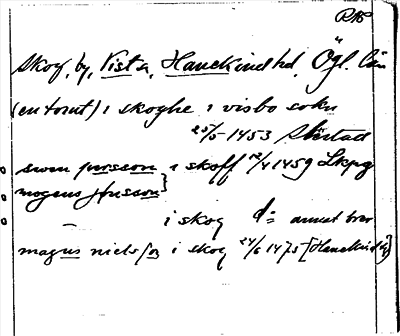 Skog, by, Vista, Hanekind hd, Ögl. län
(en tomt) i skoghe i visbo sokn
25/5 1453
swen jonsson i skoff 12/4 1459 Lkpg
mogens jonsson}
i skog d:o annat brev
magus nielsson i skog 24/6 1475 [Hanekinds hd]